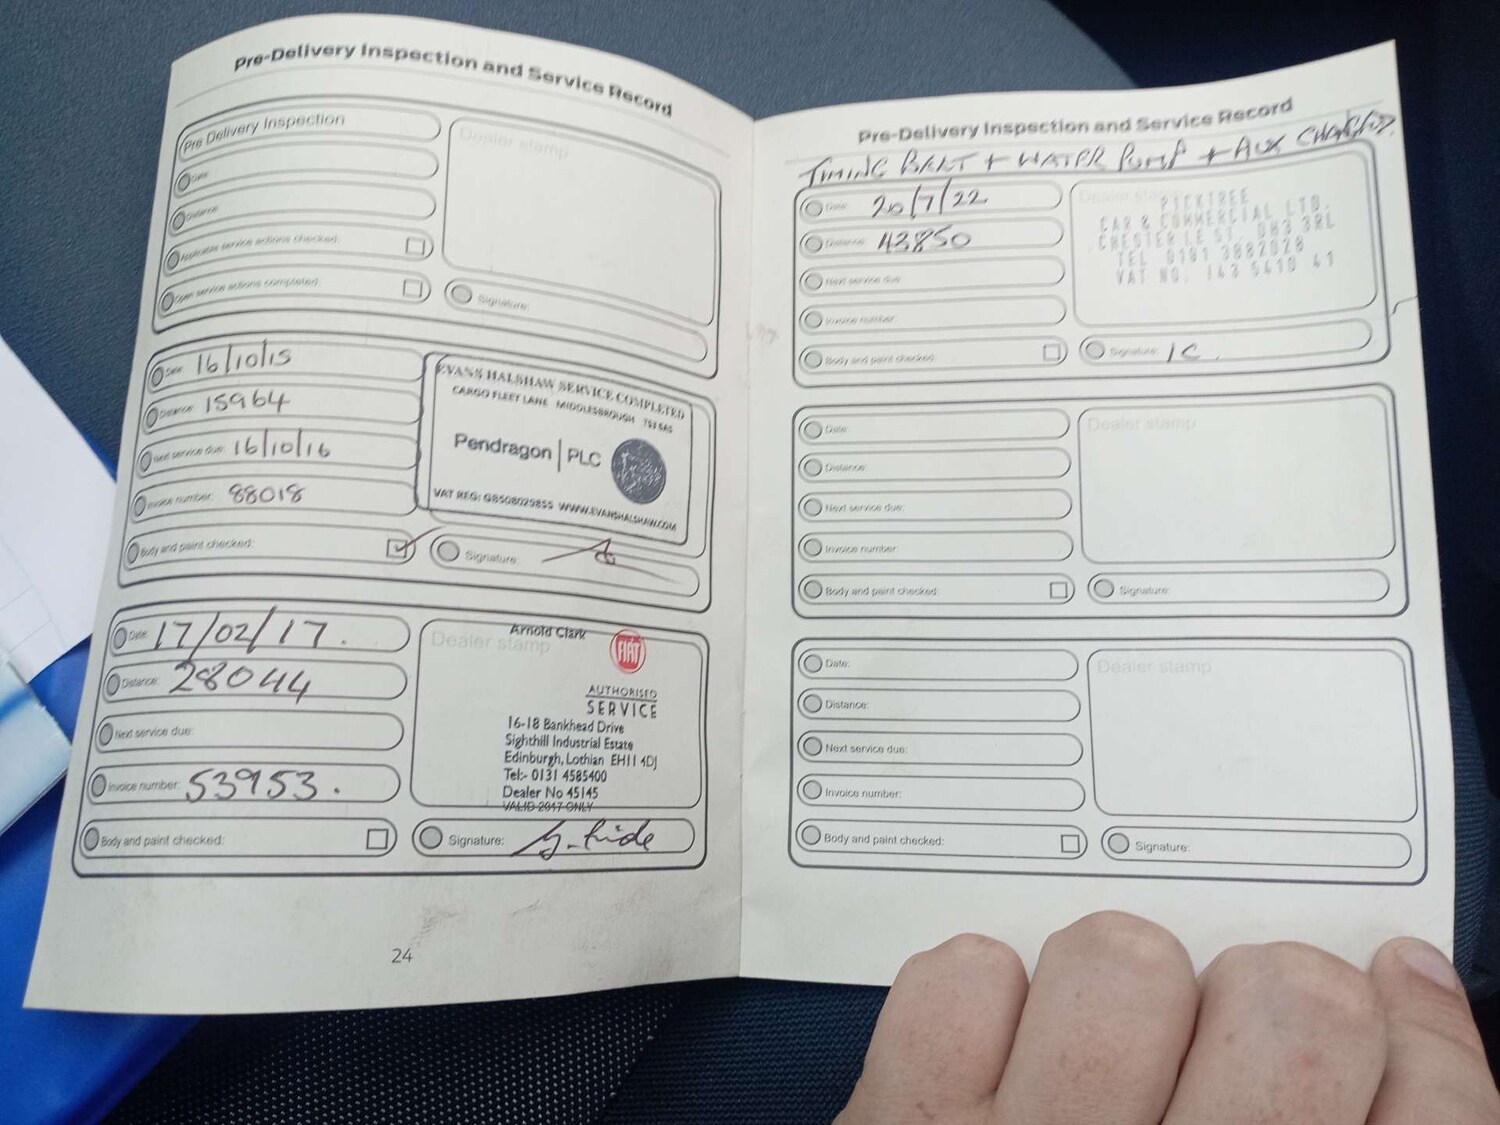 Pre-Delivery Inspection and Service Record
Pre Delivery Inspection
Date:
Distance:
Applicable service actions checked:
Open service actions completed:
Dealer stamp
Signature:
Date: 16/10/15
Distance: 15964
Next service due: 16/10/16
Invoice number: 88018
Body and paint checked:
EVANS HALSHAW SERVICE COMPLETED
CARGO FLEET LANE MIDDLESBROUGH TS3 8AS
Pendragon | PLC
VAT REG: GB508029855 WWW.EVANSHALSHAW.COM
Signature:
Date: 17/02/17.
Distance: 28044
Next service due:
Invoice number: 53953.
Body and paint checked:
Dealer stamp
Arnold Clark
FIAT
AUTHORISED
SERVICE
16-18 Bankhead Drive
Sighthill Industrial Estate
Edinburgh, Lothian EH11 4DJ
Tel:- 0131 4585400
Dealer No 45145
VALID 2017 ONLY
Signature:
24
Pre-Delivery Inspection and Service Record
TIMING BELT + WATER PUMP + AUX CHANGED.
Date: 20/7/22
Distance: 43850
Next service due:
Invoice number:
Body and paint checked:
Dealer stamp
PICKTREE
CAR & COMMERCIAL LTD.
CHESTER LE ST. DH3 3RL
TEL 0191 3882028
VAT NO. 143 5410 41
Signature: IC
Date:
Distance:
Next service due:
Invoice number:
Body and paint checked:
Dealer stamp
Signature:
Date:
Distance:
Next service due:
Invoice number:
Body and paint checked:
Dealer stamp
Signature: